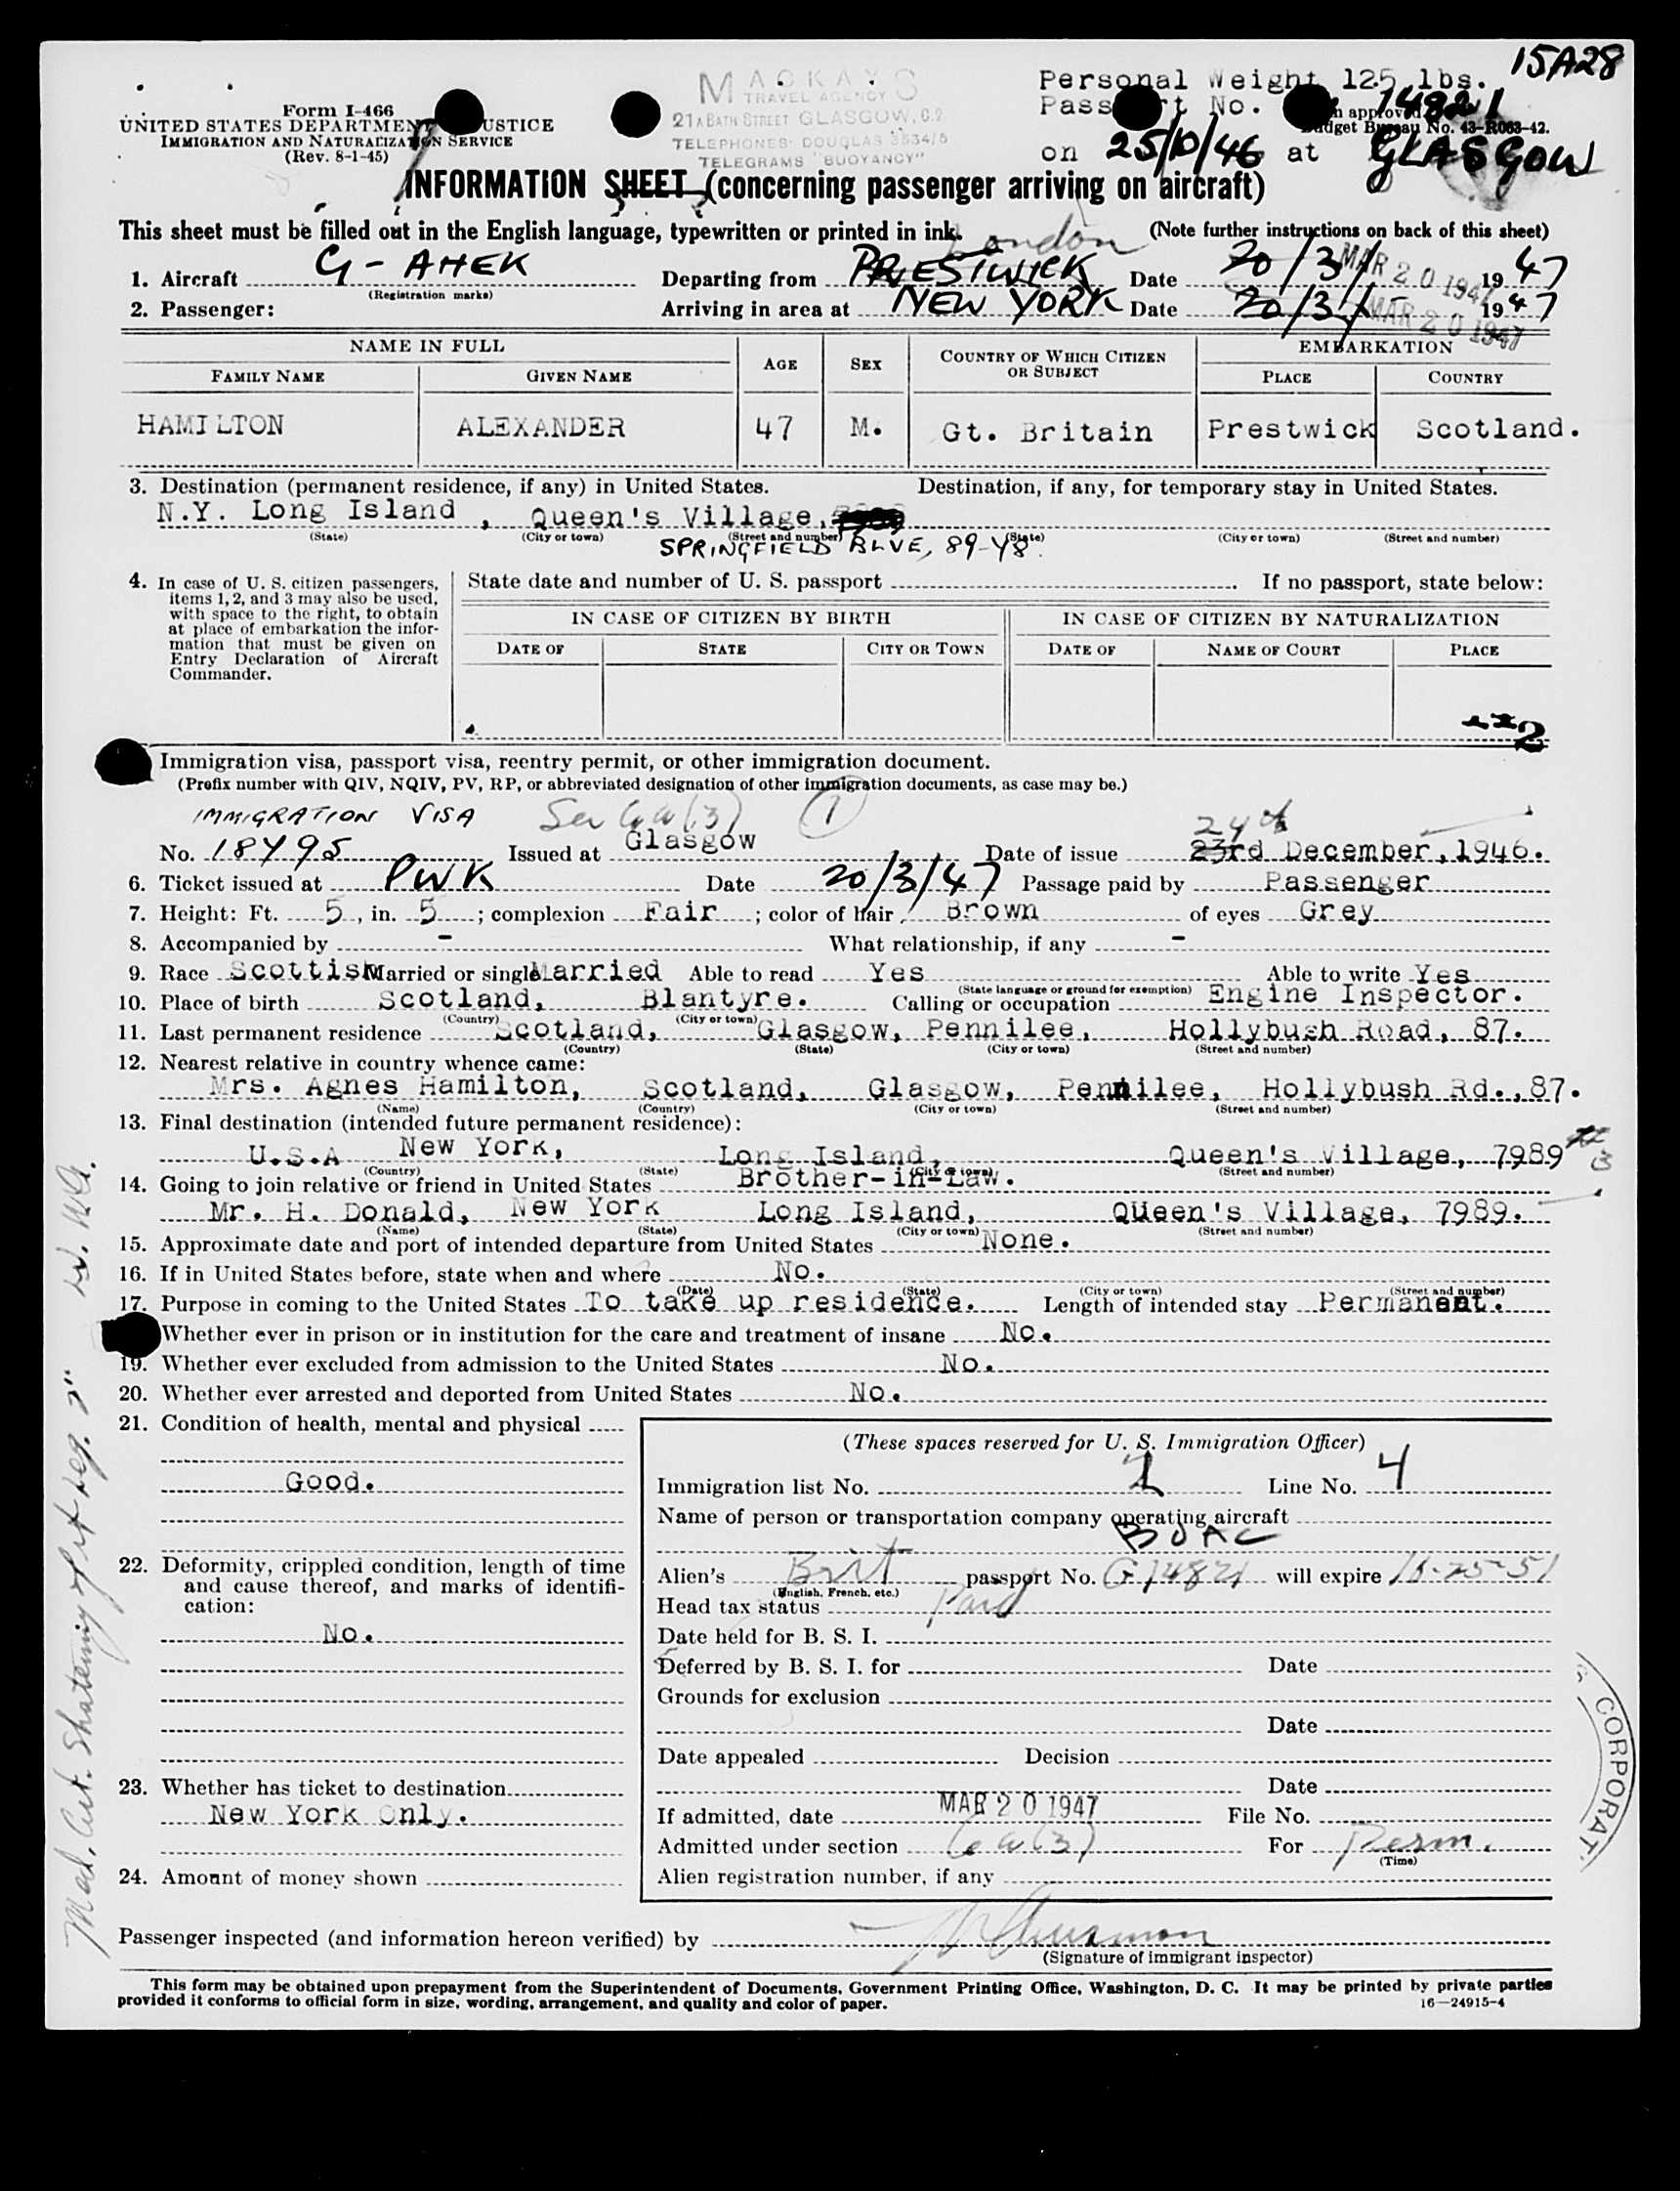 15A28
Form I-466
UNITED STATES DEPARTMENT JUSTICE
IMMIGRATION AND NATURALIZATION SERVICE
(Rev. 8-1-45)
MACKAYS
TRAVEL AGENCY
21A BATH STREET GLASGOW, C.2.
TELEPHONES: DOUGLAS 3534/5
TELEGRAMS "BUOYANCY"
Personal Weight 125 lbs.
Passport No. 14821
approved
Budget Bureau No. 43-R063-42.
on 25/10/46 at GLASGOW
INFORMATION SHEET (concerning passenger arriving on aircraft)
This sheet must be filled out in the English language, typewritten or printed in ink. (Note further instructions on back of this sheet)
London
1. Aircraft G-AHEK Departing from PRESTWICK Date 20/3/ 1947
MAR 20 1947
(Registration marks)
2. Passenger: Arriving in area at NEW YORK Date 20/3/ 1947
MAR 20 1947
NAME IN FULL AGE SEX COUNTRY OF WHICH CITIZEN OR SUBJECT EMBARKATION
FAMILY NAME GIVEN NAME PLACE COUNTRY
HAMILTON ALEXANDER 47 M. Gt. Britain Prestwick Scotland.
3. Destination (permanent residence, if any) in United States. Destination, if any, for temporary stay in United States.
N.Y. Long Island , Queen's Village,
(State) (City or town) (Street and number) (State) (City or town) (Street and number)
SPRINGFIELD BLVE, 89-48.
4. In case of U. S. citizen passengers, items 1, 2, and 3 may also be used, with space to the right, to obtain at place of embarkation the information that must be given on Entry Declaration of Aircraft Commander.
State date and number of U. S. passport . If no passport, state below:
IN CASE OF CITIZEN BY BIRTH IN CASE OF CITIZEN BY NATURALIZATION
DATE OF STATE CITY OR TOWN DATE OF NAME OF COURT PLACE
2
Immigration visa, passport visa, reentry permit, or other immigration document.
(Prefix number with QIV, NQIV, PV, RP, or abbreviated designation of other immigration documents, as case may be.)
IMMIGRATION VISA Sec 6a(3) 1 24th
No. 18495 Issued at Glasgow Date of issue 23rd December, 1946.
6. Ticket issued at PWK Date 20/3/47 Passage paid by Passenger
7. Height: Ft. 5, in. 5; complexion Fair; color of hair Brown of eyes Grey
8. Accompanied by - What relationship, if any -
9. Race Scottish Married or single Married Able to read Yes Able to write Yes
(State language or ground for exemption)
10. Place of birth Scotland, Blantyre. Calling or occupation Engine Inspector.
(Country) (City or town)
11. Last permanent residence Scotland, Glasgow, Pennilee, Hollybush Road, 87.
(Country) (State) (City or town) (Street and number)
12. Nearest relative in country whence came:
Mrs. Agnes Hamilton, Scotland, Glasgow, Pennilee, Hollybush Rd., 87.
(Name) (Country) (City or town) (Street and number)
13. Final destination (intended future permanent residence):
U.S.A New York, Long Island, Queen's Village, 7989
(Country) (State) (City or town) (Street and number)
14. Going to join relative or friend in United States Brother-in-Law.
Mr. H. Donald, New York Long Island, Queen's Village, 7989.
(Name) (State) (City or town) (Street and number)
15. Approximate date and port of intended departure from United States None.
16. If in United States before, state when and where No.
(Date) (State) (City or town) (Street and number)
17. Purpose in coming to the United States To take up residence. Length of intended stay Permanent.
Whether ever in prison or in institution for the care and treatment of insane No.
19. Whether ever excluded from admission to the United States No.
20. Whether ever arrested and deported from United States No.
21. Condition of health, mental and physical
Good.
22. Deformity, crippled condition, length of time and cause thereof, and marks of identification:
No.
23. Whether has ticket to destination
New York Only.
24. Amount of money shown
(These spaces reserved for U. S. Immigration Officer)
Immigration list No. 2 Line No. 4
Name of person or transportation company operating aircraft
BOAC
Alien's Brit passport No. G 14821 will expire 10-25-51
(English, French, etc.)
Head tax status Paid
Date held for B. S. I.
Deferred by B. S. I. for Date
Grounds for exclusion
Date
Date appealed Decision
Date
If admitted, date MAR 20 1947 File No.
Admitted under section 6a(3) For Perm.
(Time)
Alien registration number, if any
Passenger inspected (and information hereon verified) by
(Signature of immigrant inspector)
This form may be obtained upon prepayment from the Superintendent of Documents, Government Printing Office, Washington, D. C. It may be printed by private parties
provided it conforms to official form in size, wording, arrangement, and quality and color of paper. 16—24915-4
CORPORAT